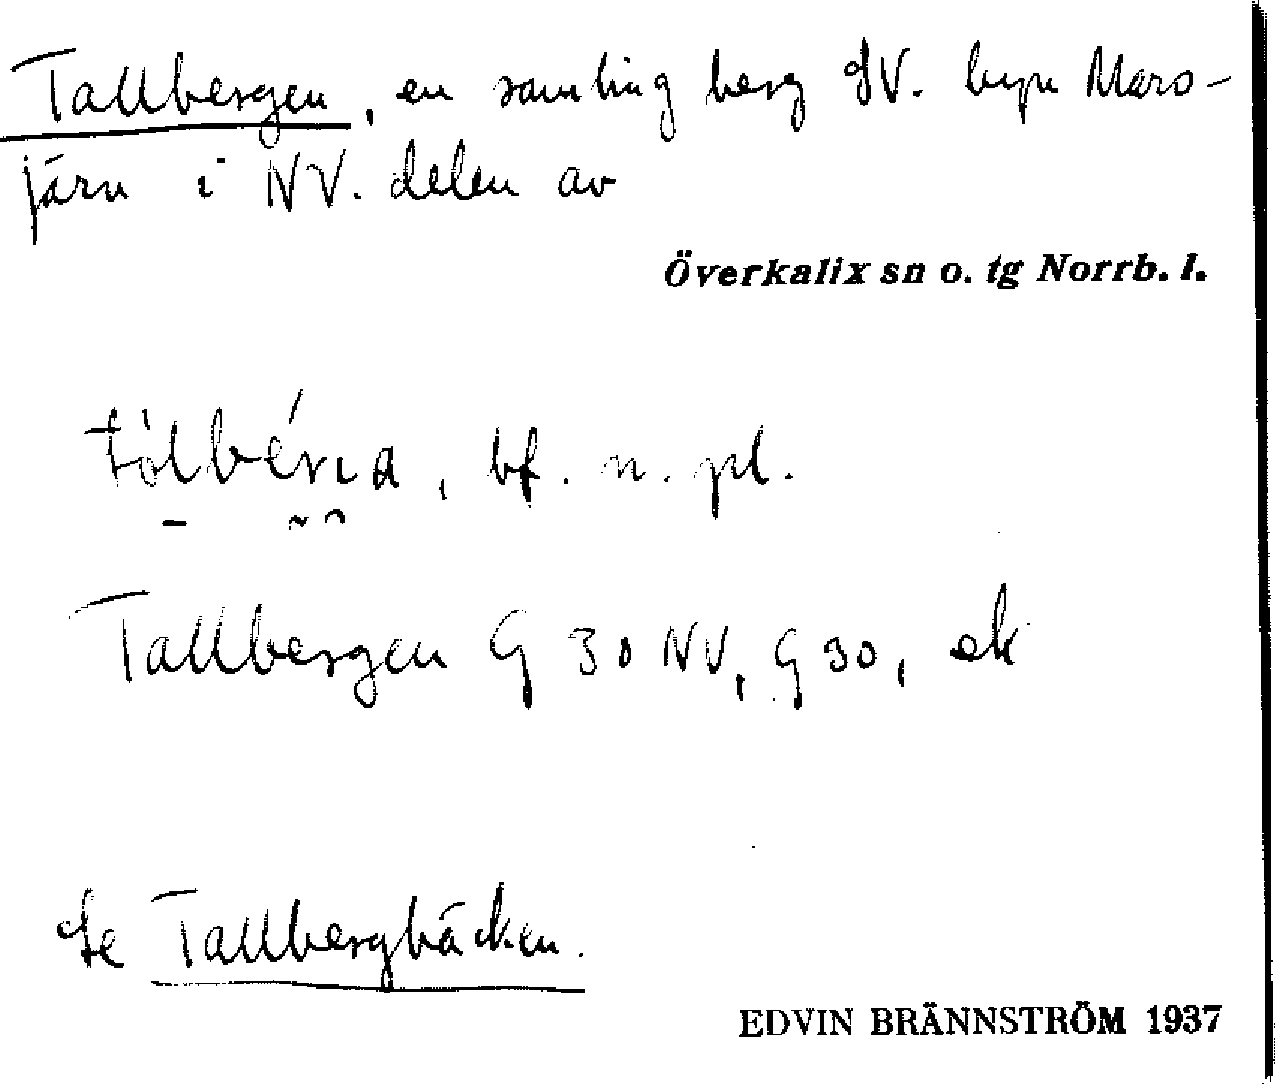 Tallbergen, en samling berg SV. byn Maro-
järv i NV. delen av
Överkalix sn o. tg Norrb. l.
bf. n. pl.
Tallbergen G 30 NV, G 30, ek
Se Tallbergbäcken.
EDVIN BRÄNNSTRÖM 1937